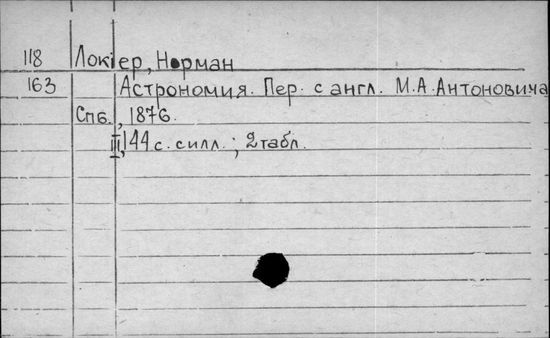 118 Локіер, Норман
163 Астрономия. Пер. с англ. М.А.Антоновича
Спб., 1876.
III, 144 с. силл.; 2 табл.